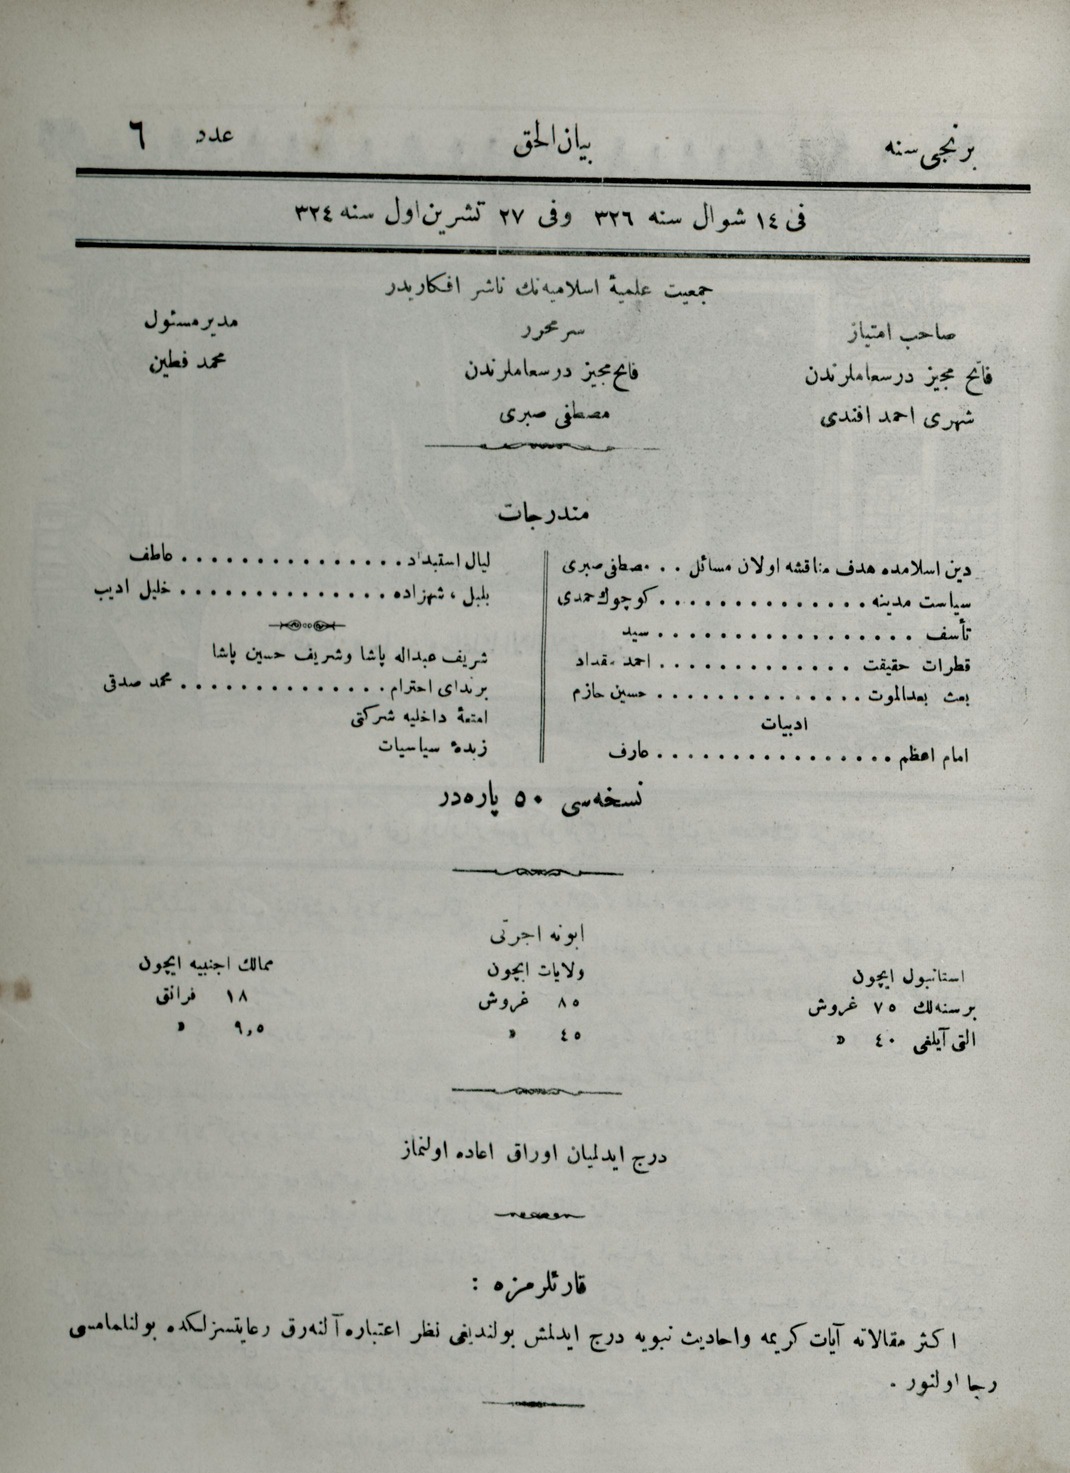 برنجی سنه
بیان الحق
عدد ٦
فی ١٤ شوال سنه ٣٢٦ وفی ٢٧ تشرین اول سنه ٣٢٤
جمعیت علمیهٔ اسلامیه‌نك ناشر افكاریدر
صاحب امتیاز
فاتح مجیز درسعاملرندن
شهری احمد افندی
سر محرر
فاتح مجیز درسعاملرندن
مصطفی صبری
مدیر مسئول
محمد فطین
مندرجات
دین اسلامده هدف مناقشه اولان مسائل . . مصطفی صبری
سیاست مدینه . . . . . . . . . . . . . . كوچوك حمدی
تأسف . . . . . . . . . . . . . . . . . سید
قطرات حقیقت . . . . . . . . . . . . . احمد مقداد
بعث بعدالموت . . . . . . . . . . . . . . حسین حازم
ادبیات
امام اعظم . . . . . . . . . . . . . . . . عارف
لیال استبداد . . . . . . . . . . . . . . . عاطف
بلبل ، شهزاده . . . . . . . . . . . . . . خلیل ادیب
شریف عبداله پاشا وشریف حسین پاشا
برندای احترام . . . . . . . . . . . . . . محمد صدقی
امتعهٔ داخلیه شركتی
زبدهٔ سیاسیات
نسخه‌سی ٥٠ پاره‌در
ابونه اجرتی
استانبول ایچون
برسنه‌لك ٧٥ غروش
التی آیلغی ٤٠ »
ولایات ایچون
٨٥ غروش
٤٥ »
ممالك اجنبیه ایچون
١٨ فرانق
٩,٥ »
درج ایدلمیان اوراق اعاده اولنماز
قارئلرمزه :
اكثر مقالاته آیات كریمه واحادیث نبویه درج ایدلمش بولندیغی نظر اعتباره آلنه‌رق رعایتسزلكده بولنلمامسی
رجا اولنور .